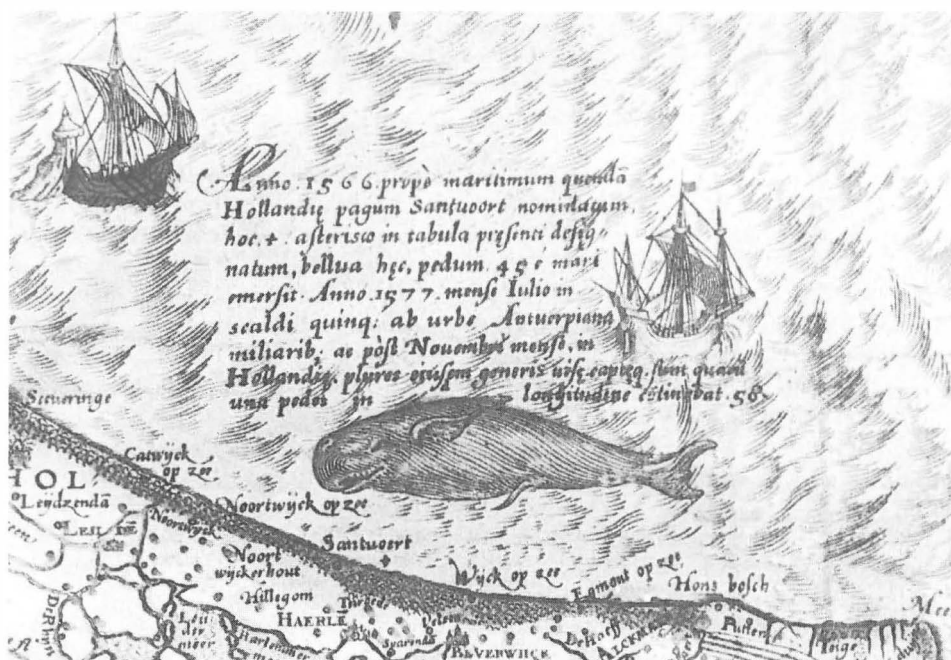 Anno. 1566. propè maritimum quendā
Hollandię pagum Santuoort nominatum,
hoc + asterisco in tabula pręsenti desig-
natum, bellua hęc, pedum 45 e mari
emersit. Anno. 1577. mense Iulio in
scaldi quinq; ab urbe Antuerpiana
miliarib; ac pòst Novembri mense, in
Hollandię, plures eiusdem generis visę captęq. sunt quarū
una pedes in longitudine 58.
Sceveringe
Catwyck
op zee
HOL
Leydzendā
Noortwyck op zee
Noortwyck
Noort
wyckerhout
Santuoert
Hillegom
HAERLE
Wyck op zee
Egmont op zee
Hons bosch
Putten
BEVERWIICK
ALCKMAR
Leu
der
meer
Harlemmer